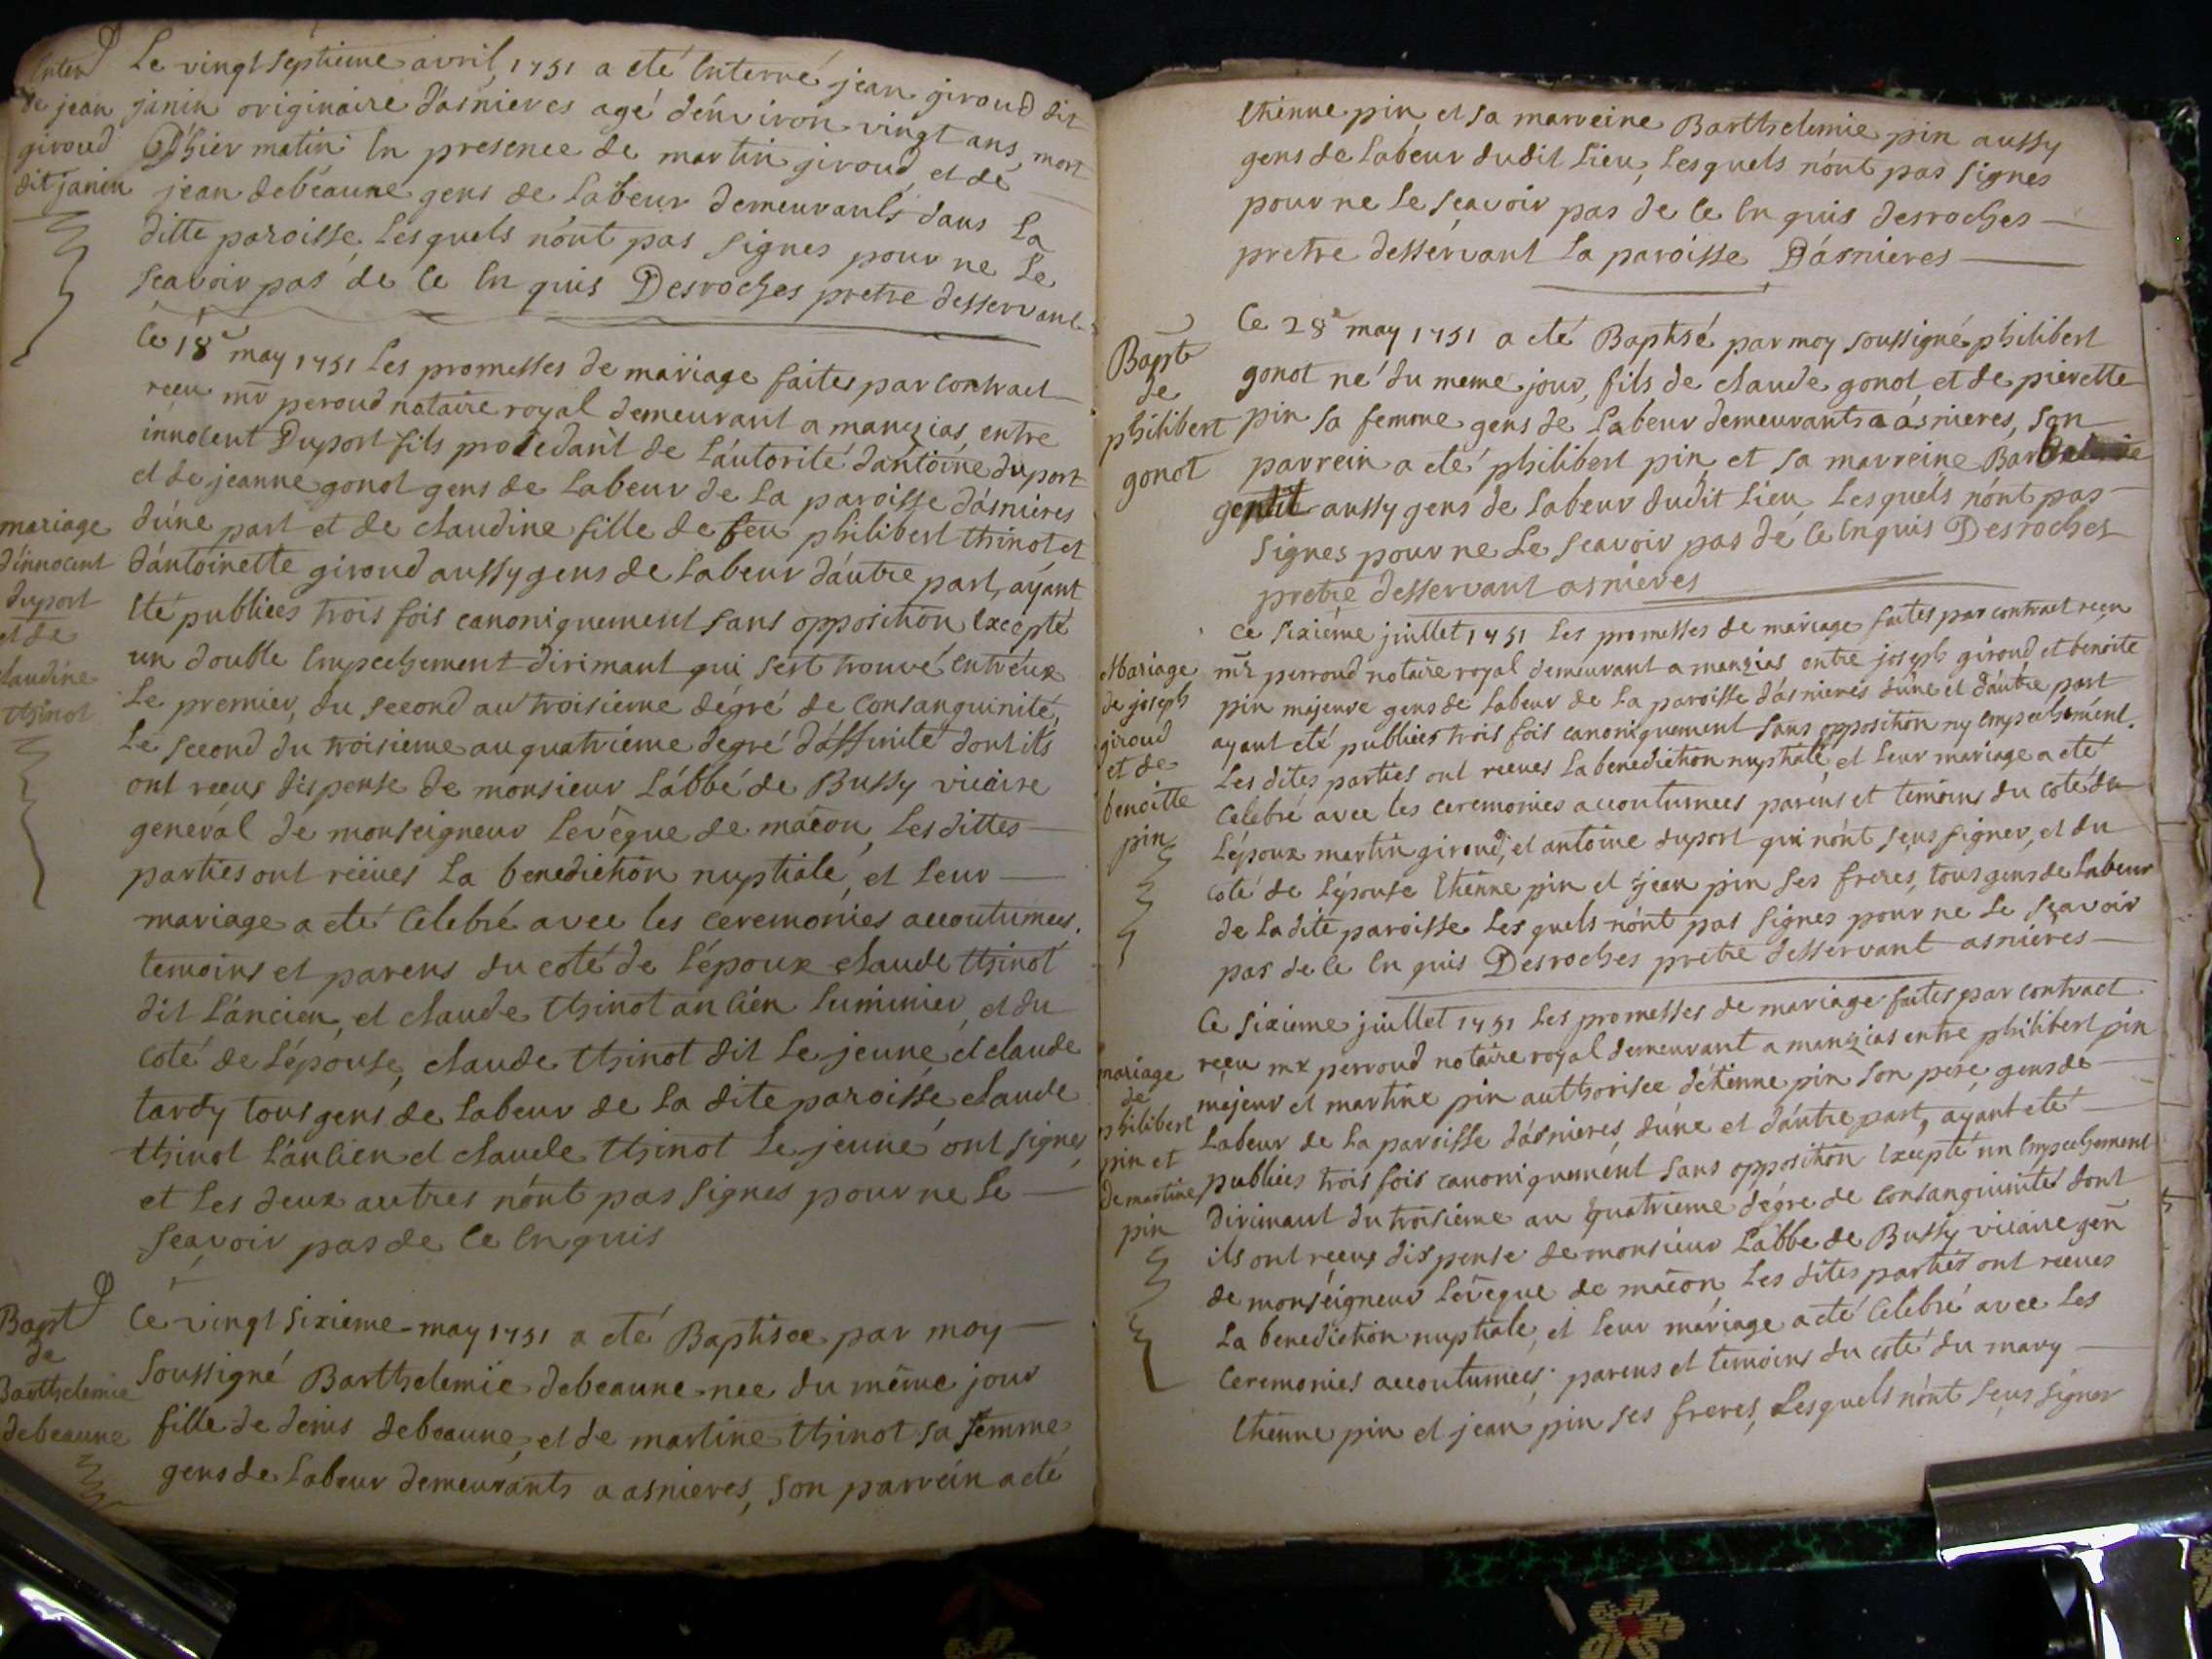 Enter
de jean
giroud
dit janin
Le vingt septieme avril 1751 a eté Enterré jean giroud dit
janin originaire dasnieres agé denviron vingt ans, mort
D'hier matin En presence de martin giroud, et de
jean debeaune gens de Labeur demeurants dans La
ditte paroisse, Lesquels n'ont pas signes pour ne Le
scavoir pas de ce Enquis Desroches pretre desservant
mariage
d'innocent
duport
et de
claudine
thinot
Ce 18e may 1751 Les promesses de mariage faites par contract
receu mr peroud notaire royal demeurant a manzias, entre
innocent Duport fils procedant de L'autorité d'antoine duport
et de jeanne gonot gens de Labeur de La paroisse d'asnieres
d'une part et de claudine fille de feu philibert thinot, et
d'antoinette giroud aussy gens de Labeur d'autre part, ayant
Eté publiees trois fois canoniquement sans opposition Excepté
un double Empechement dirimant qui s'est trouvé entr'eux
Le premier, du second au troisieme dégré de Consanguinité,
Le second du troisieme au quatrieme degré d'affinité dont ils
ont receus dispense de monsieur L'abbé de Bussy vicaire
general de monseigneur Levêque de mâcon, Les dittes
parties ont reçües La benediction nuptiale, et Leur
mariage a eté Celebré avec les ceremonies accoutumées.
temoins et parens du coté de L'époux claude thinot
dit L'ancien, et claude thinot ancien luminier, et du
coté de L'épouse, claude thinot dit Le jeune, et claude
tardy tous gens de Labeur de La dite paroisse, claude
thinot L'ancien et claude thinot Le jeune, ont signes,
et Les deux autres n'ont pas signes pour ne Le
scavoir pas de ce Enquis
Bapt
de
Barthelemie
debeaune
Ce vingt sixieme may 1751 a eté Baptisee par moy
soussigné Barthelemie debeaune nee du même jour
fille de denis debeaune, et de martine thinot sa femme
gens de Labeur demeurants a asnieres, son parrein a eté
Etienne pin, et sa marreine Barthelemie pin aussy
gens de Labeur dudit Lieu, Lesquels n'ont pas signes
pour ne Le scavoir pas de ce Enquis desroches
pretre desservant La paroisse D'asnieres
Bapt
de
philibert
gonot
Ce 28e may 1751 a eté Baptisé par moy soussigné philibert
gonot né du meme jour, fils de claude gonot, et de pierette
pin sa femme gens de Labeur demeurants a asnieres, son
parrein a eté philibert pin, et sa marreine
gentil aussy gens de Labeur dudit Lieu Lesquels n'ont pas
signes pour ne Le scavoir pas de ce Enquis Desroches
pretre desservant asnieres
Mariage
de joseph
giroud
et de
benoitte
pin
Ce sixiéme juillet 1751 Les promesses de mariage faites par contract reçu
mr perroud notaire royal demeurant a manzias entre joseph giroud et benoite
pin majeure gens de Labeur de La paroisse d'asnieres d'une et d'autre part
ayant eté publiees trois fois canoniquement sans opposition ny Empechement.
Les dites parties ont receues La benediction nuptiale, et Leur mariage a eté
Celebré avec les ceremonies accoutumees parens et temoins du coté de
L'époux martin giroud, et antoine duport qui n'ont sçeus signer, et du
coté de L'épouse Etienne pin et jean pin ses freres, tous gens de Labeur
de La dite paroisse Lesquels n'ont pas signes pour ne Le sçavoir
pas de ce Enquis Desroches pretre desservant asnieres
mariage
de
philibert
pin et
de martine
pin
Ce sixieme juillet 1751 Les promesses de mariage faites par contract
reçeu mr perroud notaire royal demeurant a manzias entre philibert pin
majeur et martine pin authorisee d'étienne pin son pere, gens de
Labeur de La paroisse d'asnieres, d'une et d'autre part, ayant eté
publiees trois fois canoniquement sans opposition Excepté un Empechement
dirimant du troisieme au quatrieme dégre de Consanguinité dont
ils ont receus dispense de monsieur L'abbe de Bussy vicaire gen
de monseigneur Levêque de mâcon, Les dites parties ont receues
La benediction nuptiale, et Leur mariage a eté Celebré avec Les
Ceremonies accoutumées, parens et temoins du coté du mary
Etienne pin et jean pin ses freres, Lesquels n'ont sçeus signer